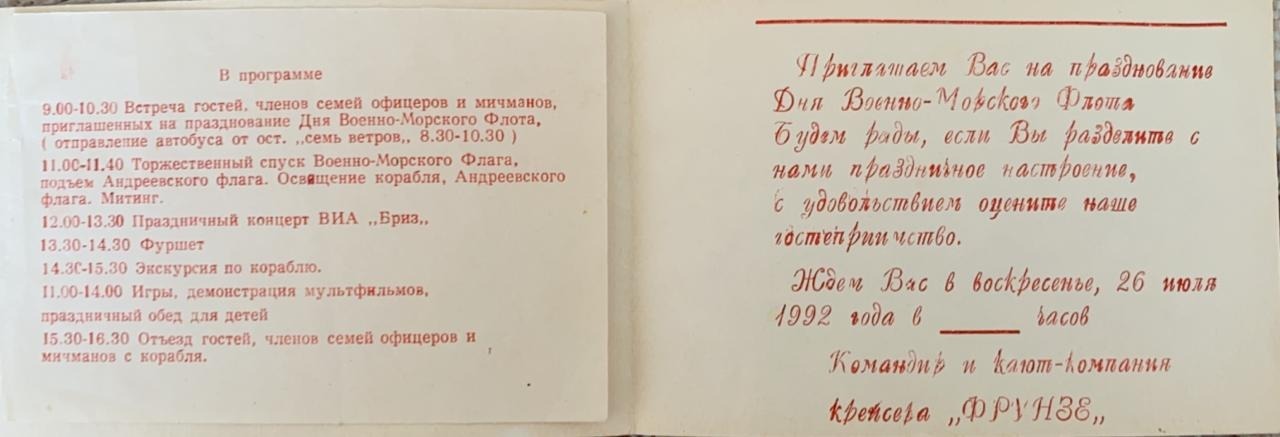 В программе
9.00-10.30 Встреча гостей, членов семей офицеров и мичманов,
приглашенных на празднование Дня Военно-Морского Флота,
( отправление автобуса от ост. „семь ветров„ 8.30-10.30 )
11.00-11.40 Торжественный спуск Военно-Морского Флага,
подъем Андреевского флага. Освящение корабля, Андреевского
флага. Митинг.
12.00-13.30 Праздничный концерт ВИА „Бриз„
13.30-14.30 Фуршет
14.30-15.30 Экскурсия по кораблю.
11.00-14.00 Игры, демонстрация мультфильмов,
праздничный обед для детей
15.30-16.30 Отъезд гостей, членов семей офицеров и
мичманов с корабля.
Приглашаем Вас на празднование
Дня Военно-Морского Флота
Будем рады, если Вы разделите с
нами праздничное настроение,
с удовольствием оцените наше
гостеприимство.
Ждем Вас в воскресенье, 26 июля
1992 года в ______ часов
Командир и кают-компания
крейсера „ФРУНЗЕ„